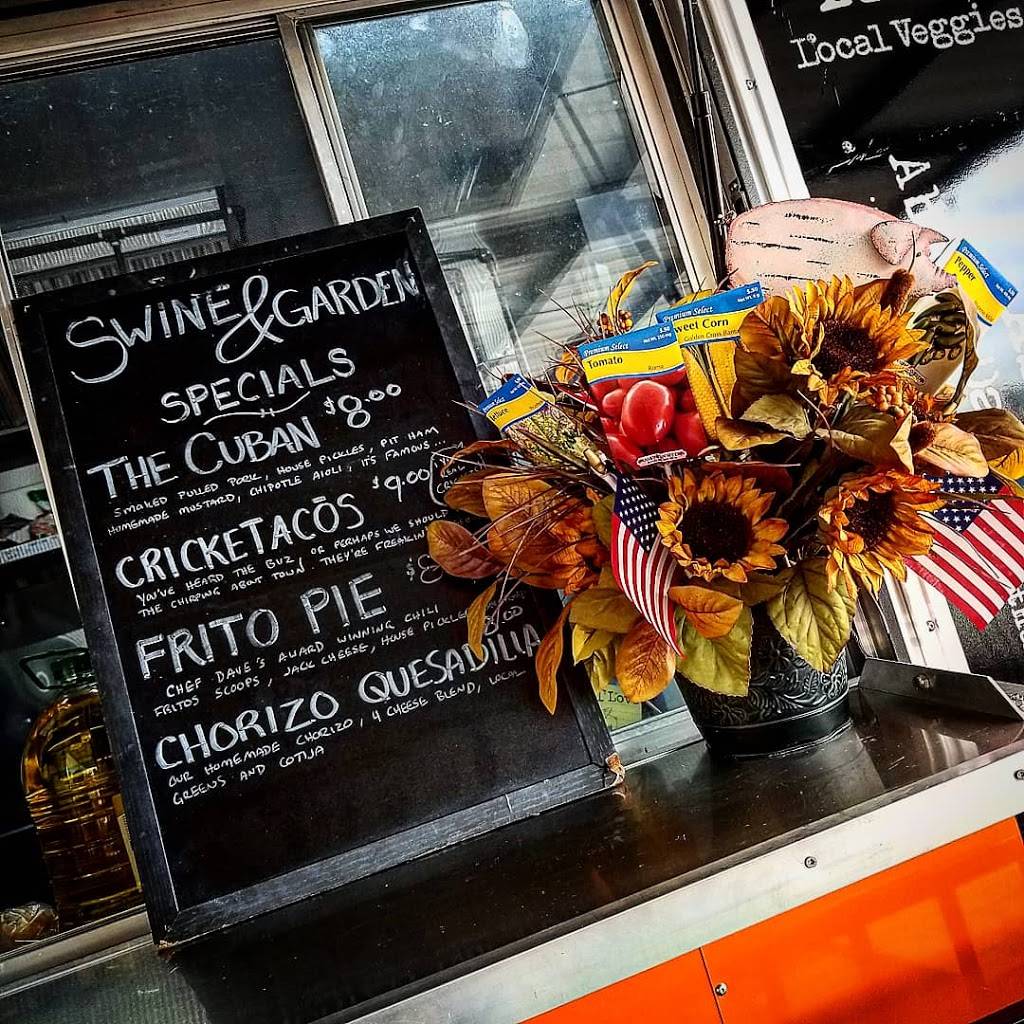 SWINE & GARDEN
SPECIALS
THE CUBAN $8.00
SMOKED PULLED PORK, HOUSE PICKLES, PIT HAM
HOMEMADE MUSTARD, CHIPOTLE AIOLI, IT'S FAMOUS...
CRICKETACOS $9.00
YOU'VE HEARD THE BUZ, OR PERHAPS WE SHOULD
THE CHIRPING ABOUT TOWN THEY'RE FREAKIN
FRITO PIE
CHEF DAVE'S AWARD WINNING CHILI
FRITOS SCOOPS, JACK CHEESE, HOUSE PICKLE
CHORIZO QUESADILLA
OUR HOMEMADE CHORIZO, 4 CHEESE BLEND, LOCAL
GREENS AND COTIJA
Local Veggies
Premium Select
Tomato
Roma
Premium Select
Sweet Corn
Golden Cross Bantam
Premium Select
Lettuce
Premium Select
Pepper